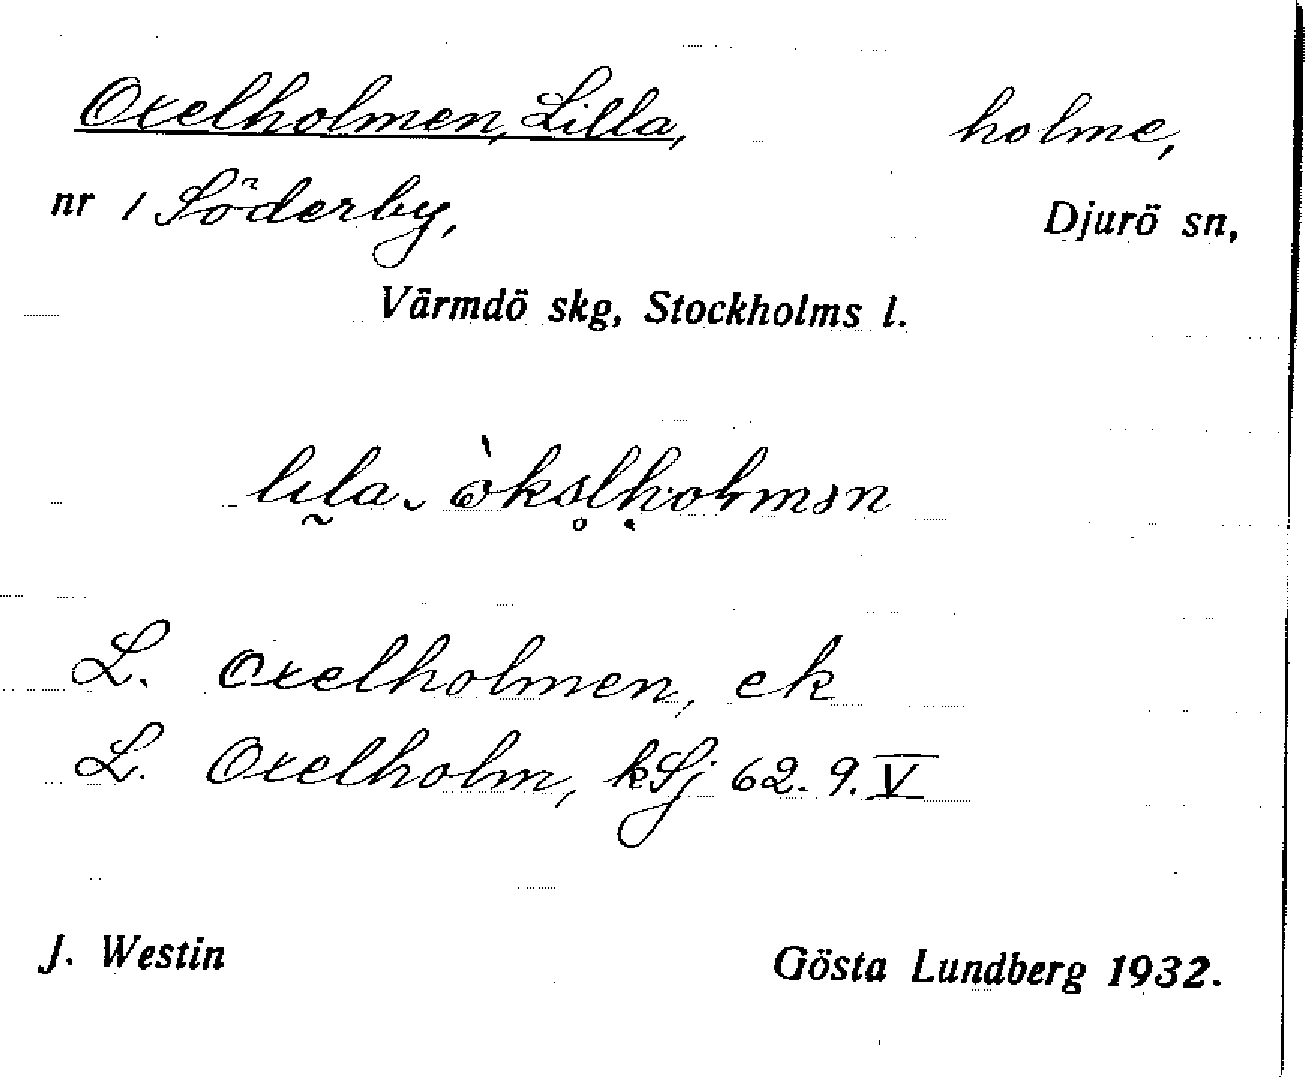 Oxelholmen, Lilla, holme,
nr 1 Söderby, Djurö sn,
Värmdö skg, Stockholms l.
L. Oxelholmen, ek
L. Oxelholm, kSj 62. 9. V
J. Westin Gösta Lundberg 1932.